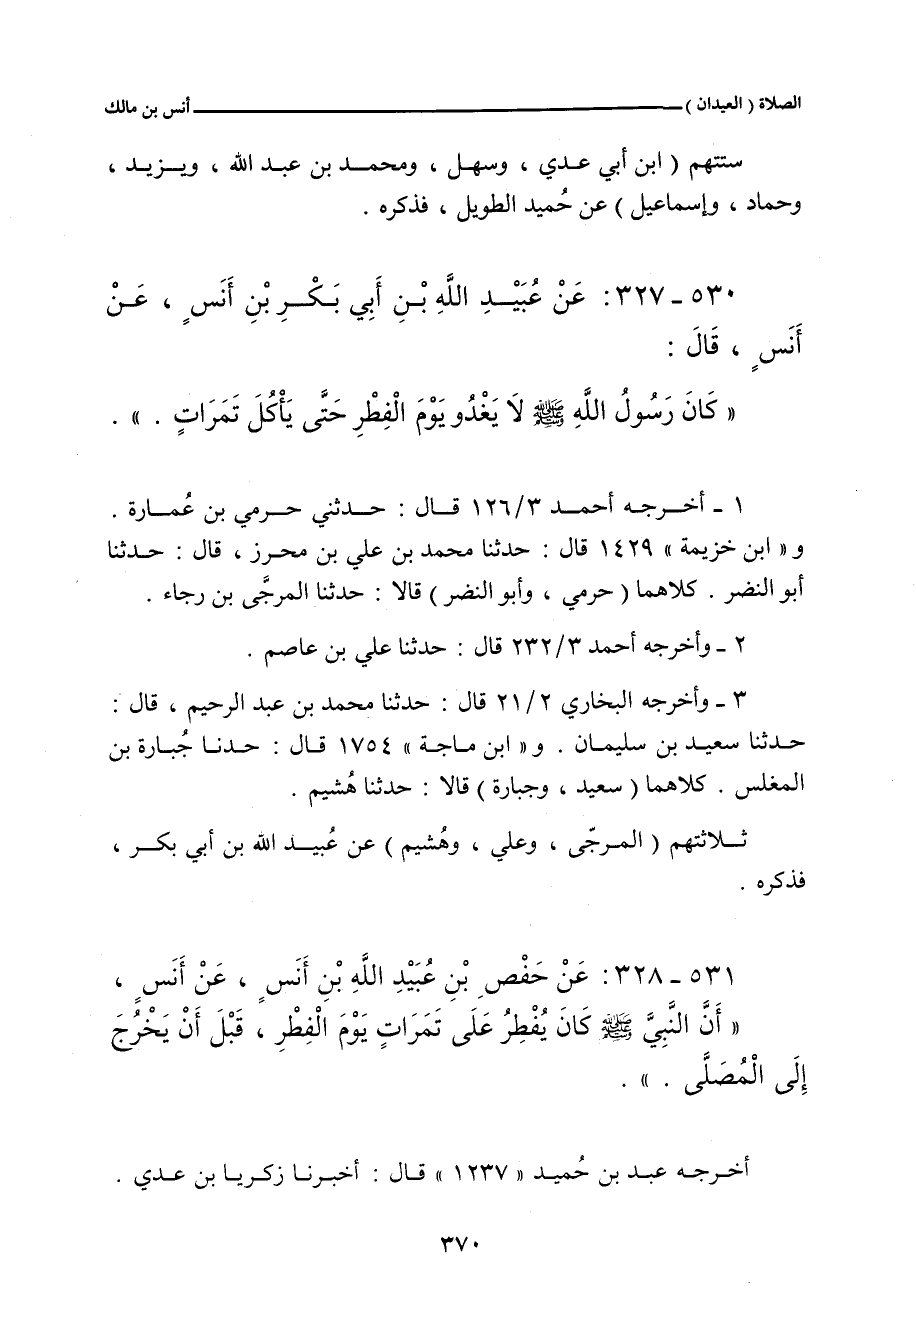 الصلاة ( العيدان ) أنس بن مالك
ستتهم ( ابن أبي عدي ، وسهل ، ومحمد بن عبد الله ، ويزيد ،
وحماد ، وإسماعيل ) عن حُميد الطويل ، فذكره .
٥٣٠ ـ ٣٢٧: عَنْ عُبَيْدِ اللَّهِ بْنِ أَبِي بَكْرِ بْنِ أَنَسٍ ، عَنْ
أَنَسٍ ، قَالَ :
« كَانَ رَسُولُ اللَّهِ ﷺ لَا يَغْدُو يَوْمَ الْفِطْرِ حَتَّى يَأْكُلَ تَمَرَاتٍ . » .
١ ـ أخرجه أحمد ١٢٦/٣ قال : حدثني حرمي بن عُمارة .
و « ابن خزيمة » ١٤٢٩ قال : حدثنا محمد بن علي بن محرز ، قال : حدثنا
أبو النضر . كلاهما ( حرمي ، وأبو النضر ) قالا : حدثنا المرجَّى بن رجاء .
٢ ـ وأخرجه أحمد ٢٣٢/٣ قال : حدثنا علي بن عاصم .
٣ ـ وأخرجه البخاري ٢١/٢ قال : حدثنا محمد بن عبد الرحيم ، قال :
حدثنا سعيد بن سليمان . و « ابن ماجة » ١٧٥٤ قال : حدنا جُبارة بن
المغلس . كلاهما ( سعيد ، وجبارة ) قالا : حدثنا هُشيم .
ثلاثتهم ( المرجّى ، وعلي ، وهُشيم ) عن عُبيد الله بن أبي بكر ،
فذكره .
٥٣١ ـ ٣٢٨: عَنْ حَفْصِ بْنِ عُبَيْدِ اللَّهِ بْنِ أَنَسٍ ، عَنْ أَنَسٍ ،
« أَنَّ النَّبِيَّ ﷺ كَانَ يُفْطِرُ عَلَى تَمَرَاتٍ يَوْمَ الْفِطْرِ ، قَبْلَ أَنْ يَخْرُجَ
إِلَى الْمُصَلَّى . » .
أخرجه عبد بن حُميد « ١٢٣٧ » قال : أخبرنا زكريا بن عدي .
٣٧٠